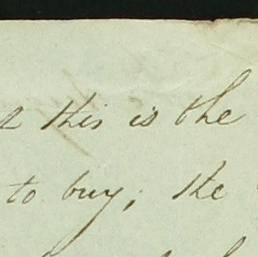 this is the
to buy; the